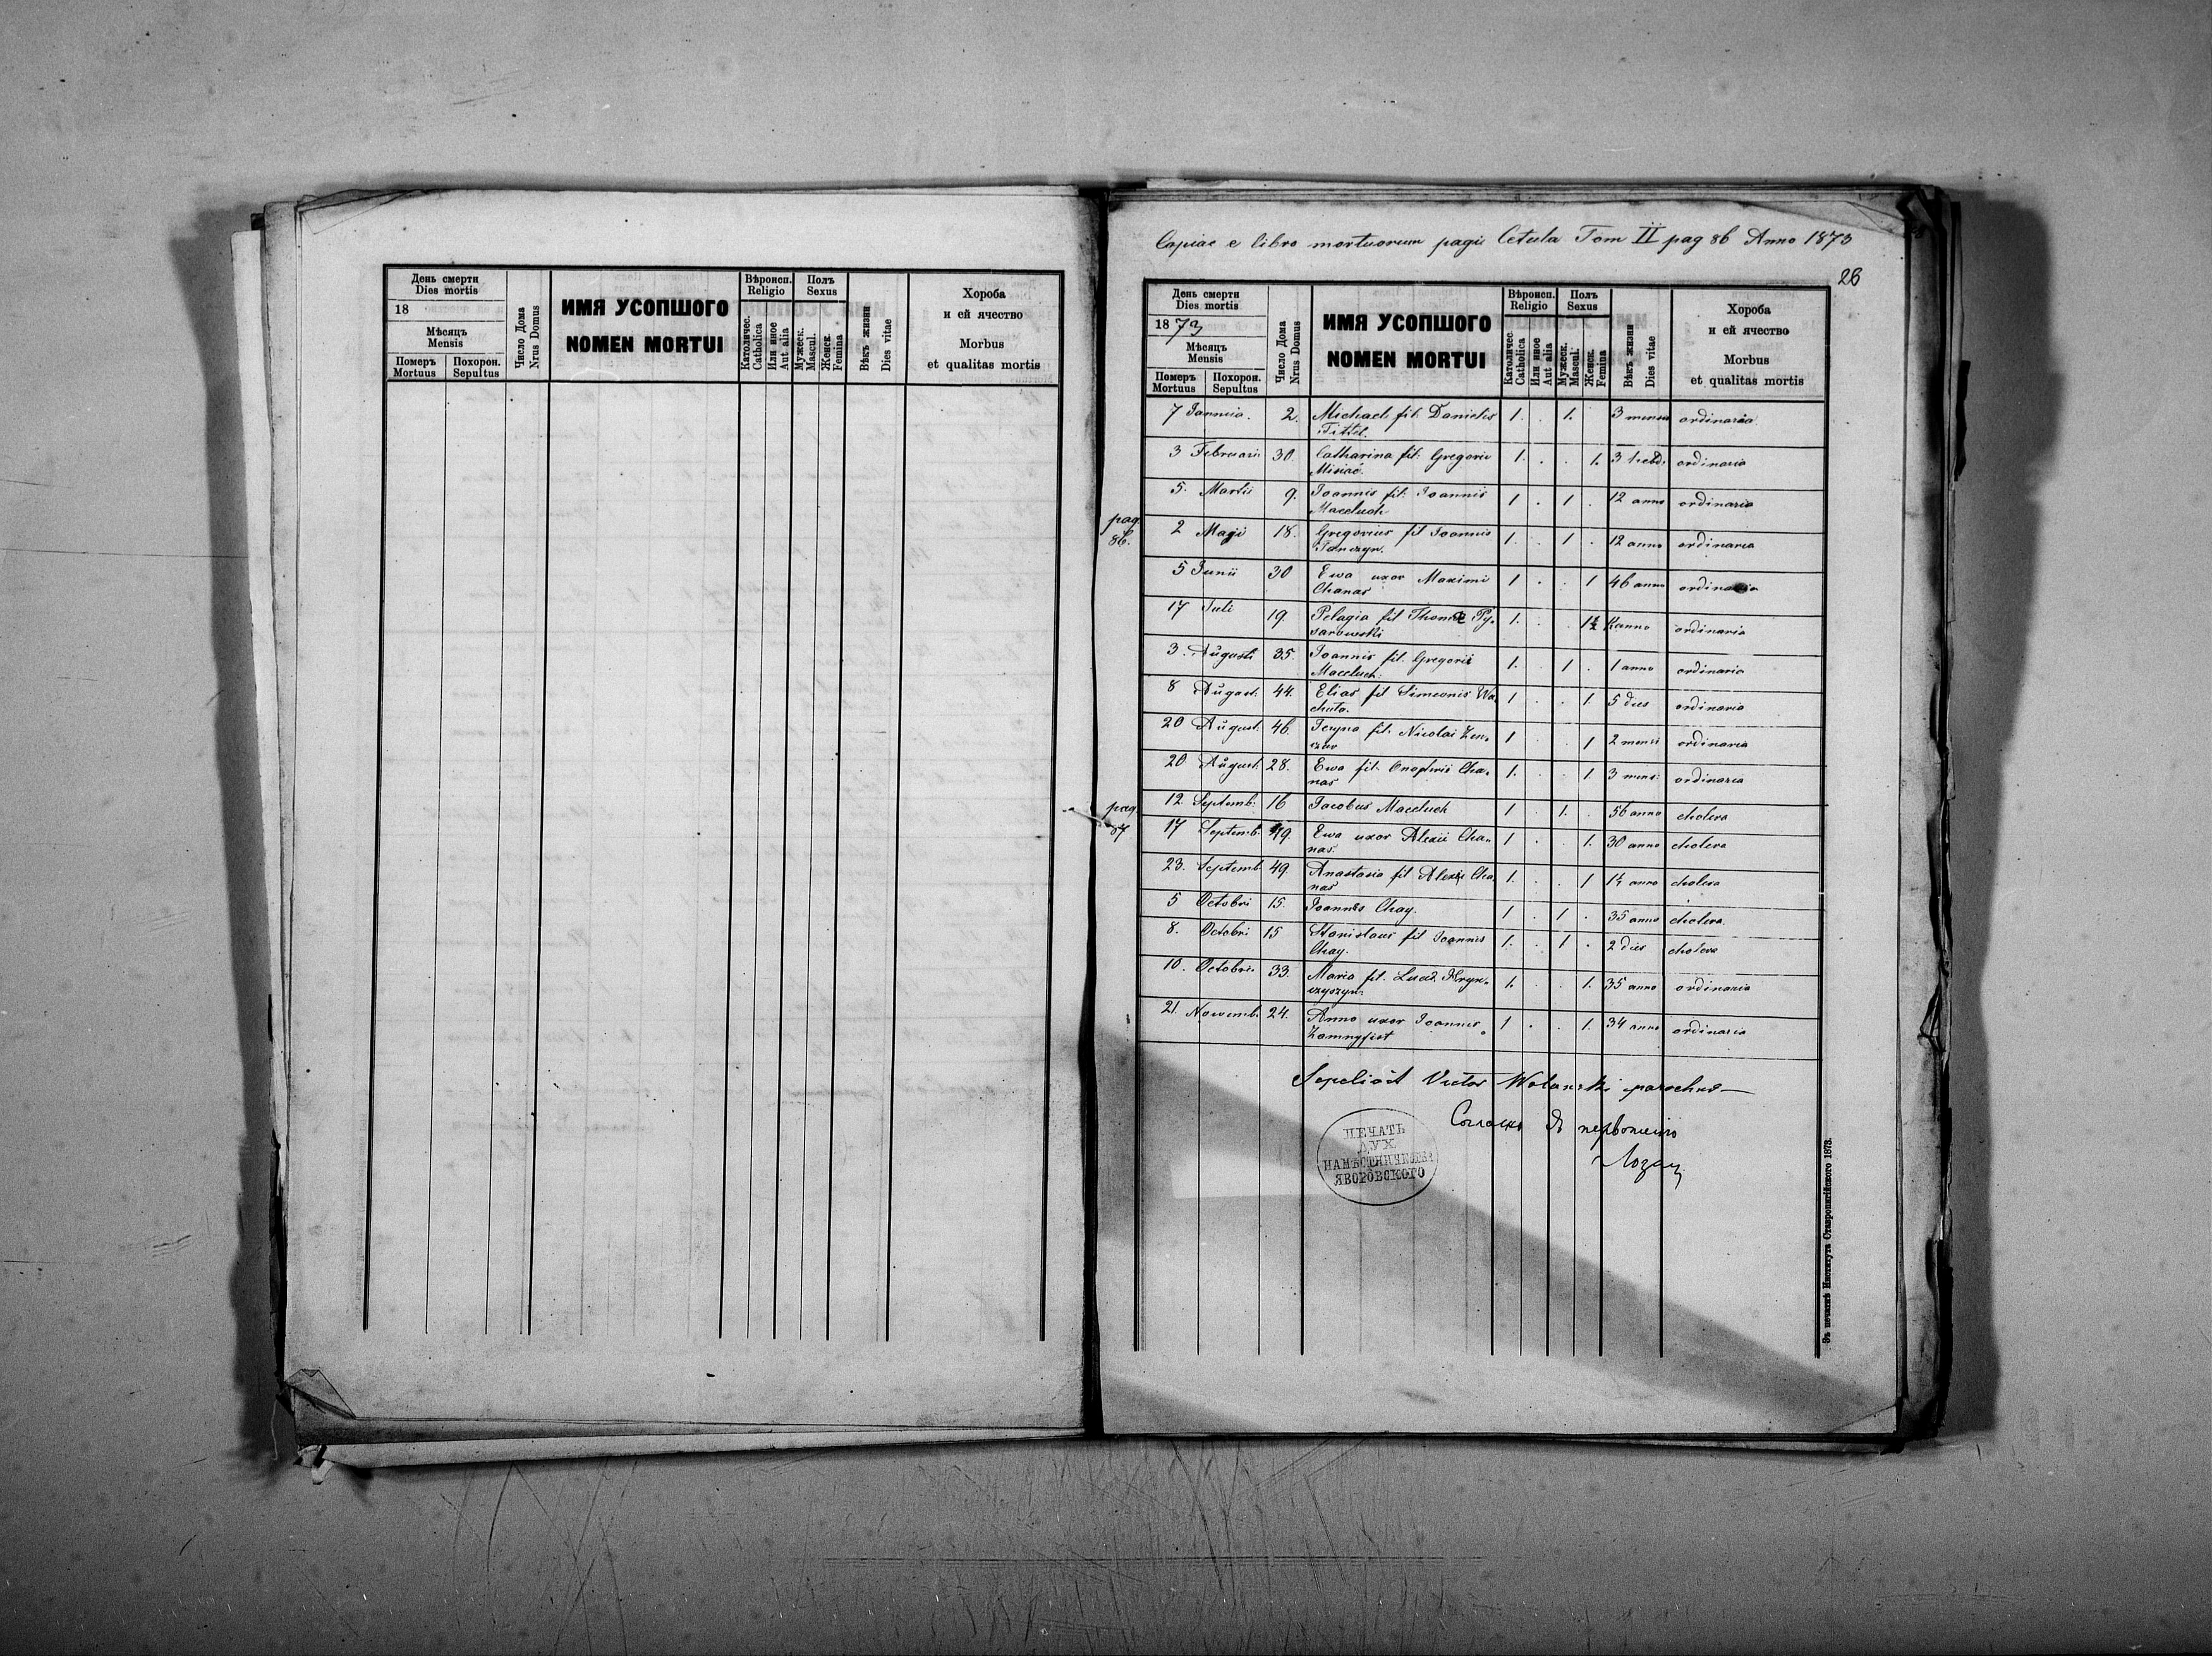 День смерти
Dies mortis
18
Мѣсяцъ
Mensis
Померъ
Mortuus
Похорон.
Sepultus
Число Дома
Nrus Domus
ИМЯ УСОПШОГО
NOMEN MORTUI
Вѣроисп.
Religio
Католичес.
Catholica
Или иное
Aut alia
Полъ
Sexus
Мужеск.
Mascul.
Женск.
Femina
Вѣкъ жизни
Dies vitae
Хороба
и ей ячество
Morbus
et qualitas mortis
Copiae e libro mortuorum pagii Cetula Tom II pag 86 Anno 1873
28
День смерти
Dies mortis
1873
Мѣсяцъ
Mensis
Померъ
Mortuus
Похорон.
Sepultus
Число Дома
Nrus Domus
ИМЯ УСОПШОГО
NOMEN MORTUI
Вѣроисп.
Religio
Католичес.
Catholica
Или иное
Aut alia
Полъ
Sexus
Мужеск.
Mascul.
Женск.
Femina
Вѣкъ жизни
Dies vitae
Хороба
и ей ячество
Morbus
et qualitas mortis
7 Januaia. 2. Michael fil. Danielis 1. . 1. 3 mensis ordinaria
Tittel.
3 Februarii 30. Catharina fil. Gregorii 1. . . 1. 3 hebd. ordinaria
Misiač.
5. Martii 9. Joannis fil. Joannis 1 . 1 . 12 anno ordinaria
Maceluch
pag. 86.
2 Maji 18. Gregorius fil Joannis 1. . 1 . 12 anno ordinaria
5 Junii 30 Ewa uxor Maximi 1 . . 1 46 anno ordinaria
Chanas
17 Juli 19. Pelagia fil Thomae Py- 1. . . 1 anno ordinaria
sarowski
3. Augusti 35. Joannis fil. Gregorii 1. . 1 . 1 anno ordinaria
Maceluch.
8 August. 44. Elias fil Simeonis Wa 1 . . 1. 5 dies ordinaria
chuta.
20 August. 46. Jeryna fil. Nicolai 1 . . 1 2 mensi ordinaria
20 August. 28. Ewa fil. Onophrii Cha- 1. . . 1. 3 mens. ordinaria
nas
12. Septemb. 16 Jacobus Maceluch 1 . 1. . 56 anno cholera
pag. 87
17 Septemb. 49. Ewa uxor Alexii Cha- 1 . . 1. 30 anno cholera
nas.
23. Septemb 49 Anastasia fil Alexii Cha 1. . . 1 1½ anno cholera
nas
5 Octobri 15. Joannes Chay. 1 . 1 . 35 anno cholera.
8. Octobri 15 Stanislaus fil Joannis 1. . 1 . 2 dies cholera
Chay.
10. Octobris 33. Maria fil. Lucae Hryn- 1. . . 1. 35 anno ordinaria
czyszyn.
21. Novemb. 24. Anna uxor Joannis 1 . . 1. 34 anno ordinaria
Sepeliat Victor Wolanski parochus
ПЕЧАТЬ
ДУХ
НАМѢСТНИЧЕСТ.
ЯВОРОВСКОГО
Зъ печатнѣ Института Ставропигійского 1873.